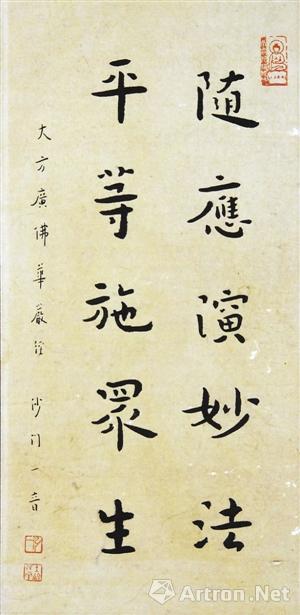 随應演妙法
平等施眾生
大方廣佛華嚴經 沙门一音
Artron.Net